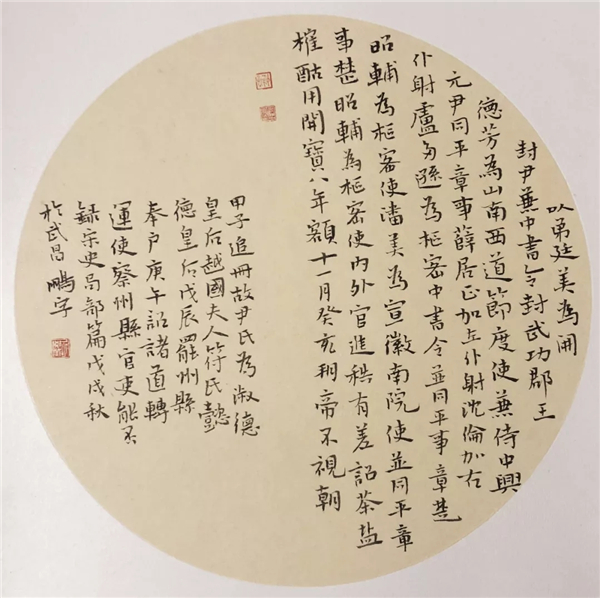 以弟廷美為開
封尹兼中書令封武功郡王
德芳為山南西道節度使兼侍中興
元尹同平章事薛居正加左仆射沈倫加右
仆射盧多遜為枢密中書令並同平事章楚
昭輔為枢密使潘美為宣徽南院使並同平章
事楚昭輔為枢密使内外官進秩有差詔茶盐
榷酤用開寶八年額十一月癸亥朔帝不視朝
甲子追冊故尹氏為淑德
皇后越國夫人符氏懿
德皇后戊辰罷州縣
奉戶庚午詔諸道轉
運使察州縣官吏能否
録宋史局部篇戊戌秋
於武昌 鵬字